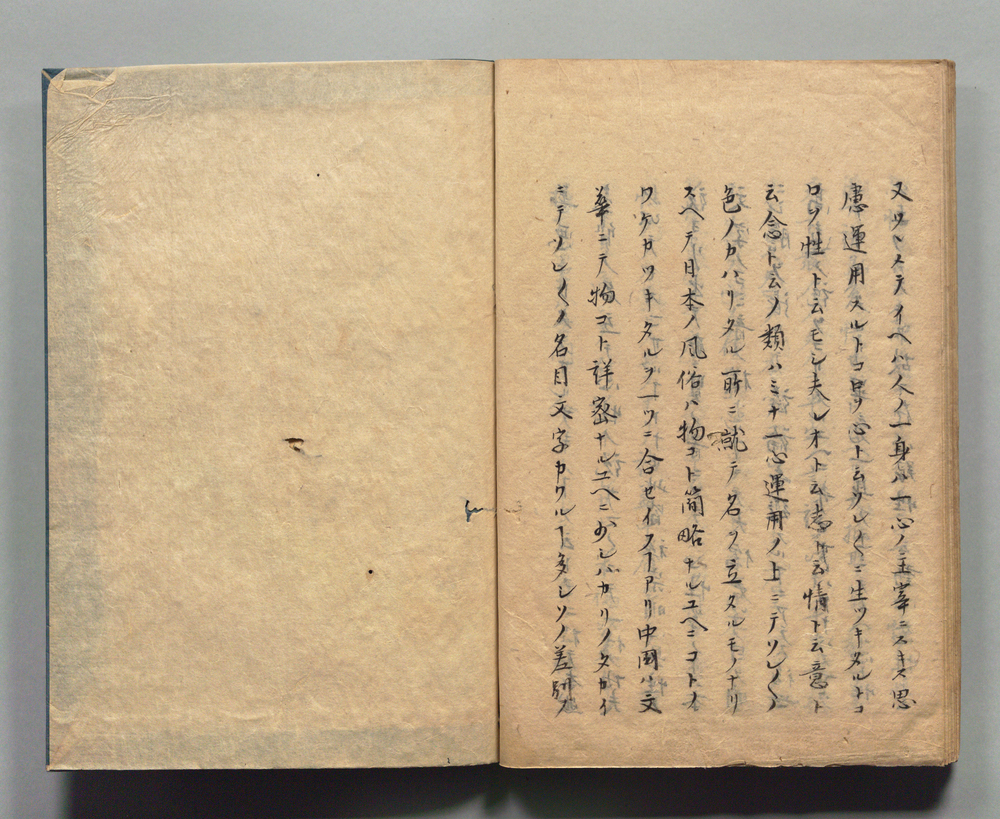 又ツヽメテイヘハ人ノ一身ハ一心ノ主宰ニスキス思
慮運用スルトコロヲ心ト云ソレ〱ニ生ツキタルトコ
ロヲ性ト云モシ夫レオト云志ト云情ト云意ト
云念ト云ノ類ハミナ一心運用ノ上ニテソレ〱ノ
色ノカハリタル所ニ就テ名ヲ立タルモノナリ
スヘテ日本ノ風俗ハ物コト簡略ナルユヘニコトノ
ワケカツキタルヲ一ツニ合セイフヿアリ中国ハ文
華ニテ物コト詳密ナルユヘニ少シバカリノタカイ
ニテソレ〱ノ名目文字カワルヿ多シソノ差別ヲ